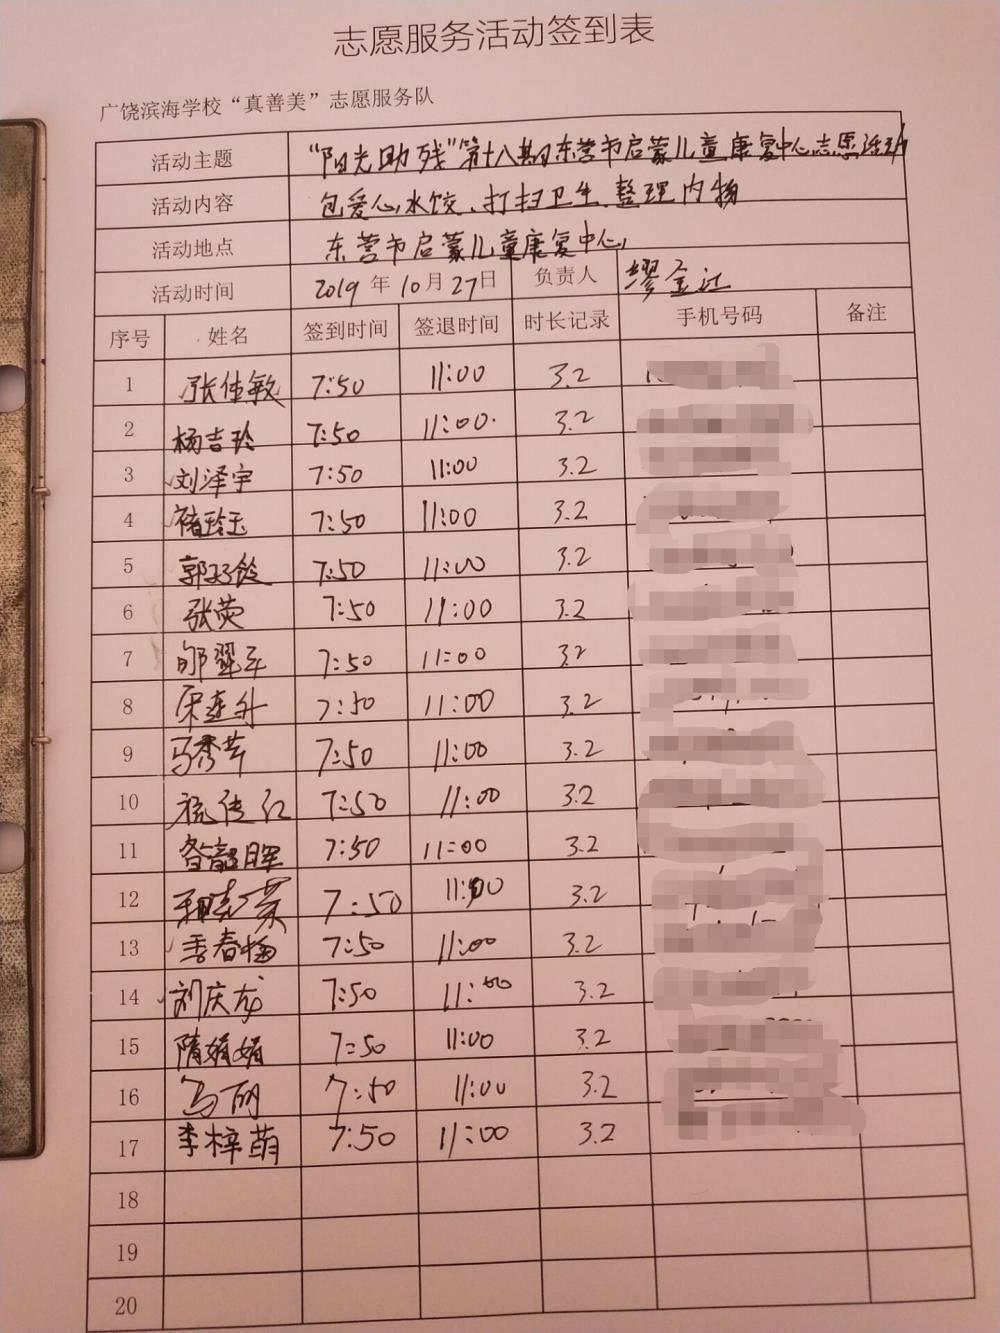 志愿服务活动签到表
广饶滨海学校“真善美”志愿服务队
活动主题 “阳光助残”第十八期东营市启蒙儿童康复中心志愿活动
活动内容 包爱心水饺、打扫卫生、整理内物
活动地点 东营市启蒙儿童康复中心
活动时间 2019年10月27日 负责人 缪金江
序号 姓名 签到时间 签退时间 时长记录 手机号码 备注
1 张佳敏 7:50 11:00 3.2
2 杨吉玲 7:50 11:00 3.2
3 刘泽宇 7:50 11:00 3.2
4 褚玲玉 7:50 11:00 3.2
5 郭 7:50 11:00 3.2
6 张荧 7:50 11:00 3.2
7 7:50 11:00 3.2
8 宋连升 7:50 11:00 3.2
9 马秀芹 7:50 11:00 3.2
10 7:50 11:00 3.2
11 昝韶晖 7:50 11:00 3.2
12 7:50 11:00 3.2
13 季春梅 7:50 11:00 3.2
14 刘庆龙 7:50 11:00 3.2
15 隋娟娟 7:50 11:00 3.2
16 马丽 7:50 11:00 3.2
17 李梓萌 7:50 11:00 3.2
18
19
20